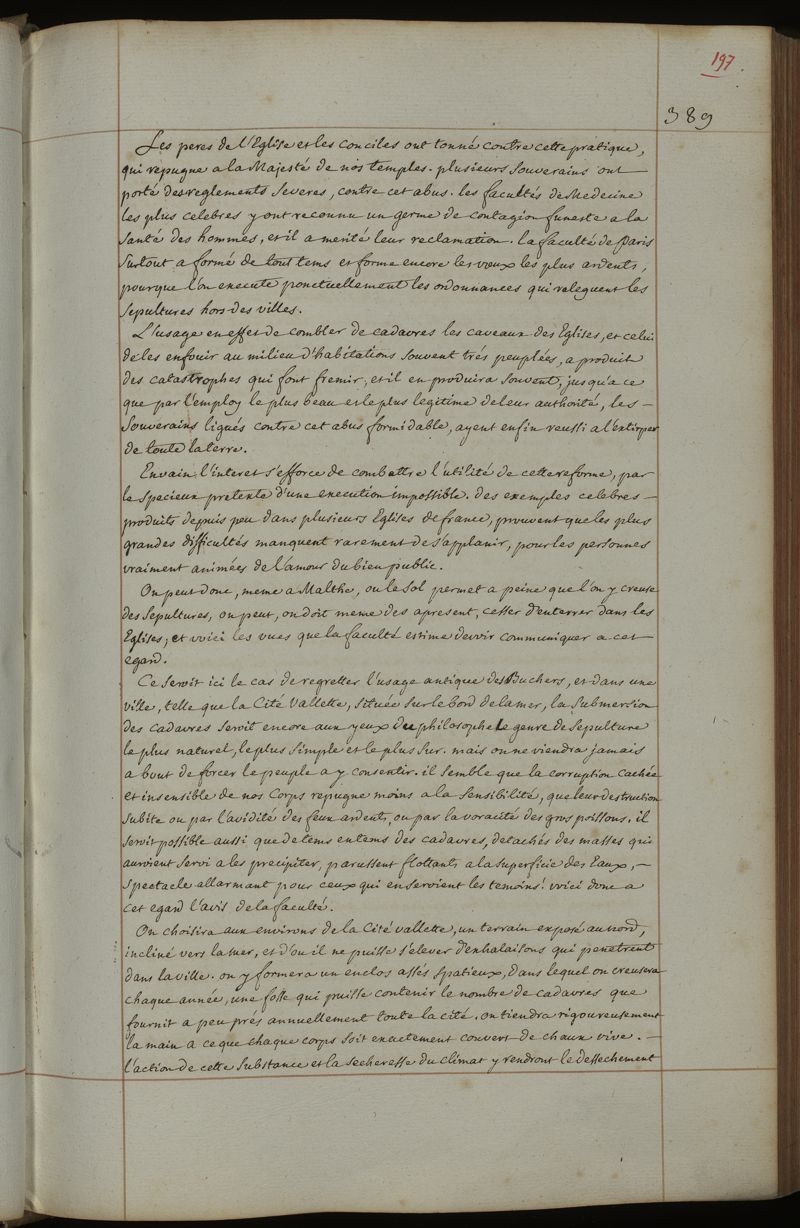 197
389
Les peres de l'Eglise et les Conciles ont tonné contre cette pratique,
qui repugne a la Majesté de nos temples. plusieurs Souverains ont
porté des reglements Severes, contre cet abus. les facultés de Medecine
les plus celebres y ont reconnu un germe de contagion funeste a la
Santé des hommes, et il a merité leur reclamation. la faculté de Paris
Surtout a formé de tout tems et forme encore les vœux les plus ardents,
pour que l'on execute ponctuellement les ordonnances qui releguent les
Sepultures hors des villes.
L'usage en effet de combler de cadavres les caveaux des Eglises, et celui
de les enfouir au milieu d'habitations Souvent trés peuplées, a produit
des catastrophes qui font fremir, et il en produira Souvent, jusqu'a ce
que par l'employ le plus beau et le plus legitime de leur authorité, les —
Souverains ligués contre cet abus formidable, ayent enfin reussi a l'extirper
de toute la terre.
En vain l'interet s'efforce de combattre l'utilité de cette reforme, par
le Specieux pretexte d'une execution impossible. des exemples celebres —
produits depuis peu dans plusieurs Eglises de france, prouvent que les plus
grandes difficultés manquent rarement de s'applanir, pour les personnes
vraiment animées de l'amour du bien public.
On peut donc, meme a Malthe, ou le Sol permet a peine que l'on y creuse
des Sepultures, on peut, on doit meme des apresent, cesser d'enterrer dans les
Eglises, et voici les vues que la faculté estime devoir communiquer a cet —
egard.
Ce Seroit ici le cas de regretter l'usage antique des Buchers, et dans une
ville, telle que la Cité Vallette, Située Sur le bord de la mer, la Submersion
des cadavres Seroit encore aux yeux du philosophe le genre de Sepulture
le plus naturel, le plus Simple et le plus Sur. mais on ne viendra jamais
a bout de forcer le peuple a y consentir. il Semble que la corruption cachée
et insensible de nos Corps repugne moins a la Sensibilité, que leur destruction
Subite ou par l'avidité des feux ardents, ou par la voracité des gros poissons. il
Seroit possible aussi que de tems en tems des cadavres, detachés des masses qui
auroient Servi a les precipiter, parussent flottants a la Superficie des Eaux, —
Spectacle allarmant pour ceux qui en Seroient les temoins! voici donc a
cet egard l'avis de la faculté.
On choisira aux environs de la Cité vallette, un terrain exposé au nord,
incliné vers la mer, et d'ou il ne puisse s'elever d'exhalaisons qui penetrent
dans la ville. on y formera un enclos assés Spatieux, dans lequel on creusera
chaque année, une fosse qui puisse contenir le nombre de cadavres que
fournit a peu prés annuellement toute la cité. on tiendra rigoureusement
la main a ce que chaque corps Soit exactement couvert de chaux vive. —
l'action de cette Substance et la Secheresse du climat y rendront le dessechement